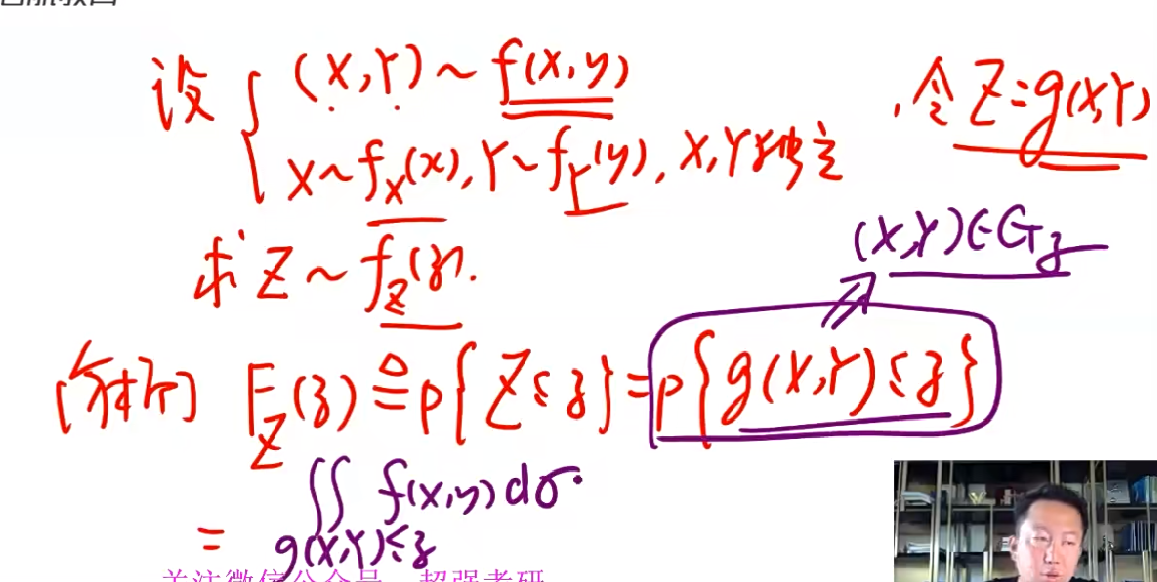 设 { (X,Y) ~ f(x,y)
X ~ f_X(x), Y ~ f_Y(y), X,Y 独立
, 令 Z = g(X,Y)
求 Z ~ f_Z(z).
(X,Y) ∈ G_z
[分析] F_Z(z) ≜ P{Z ≤ z} = P{g(X,Y) ≤ z}
= ∬ f(x,y) dσ.
g(X,Y) ≤ z
关注微信公众号 超强考研